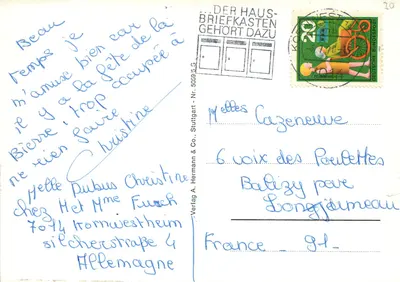 Beau
temps je
m'amuse bien car
il y a la fête de la
Bierre, trop occupée à
ne rien faire.
Christine
Melle Dubus Christine
chez Met Mme Fusch
7014 Kornwestheim
silcherstraße 4
Allemagne
Verlag A. Hermann & Co., Stuttgart - Nr. 5009 S G
...DER HAUS-
BRIEFKASTEN
GEHÖRT DAZU
20
30
Melles Cazeneuve
6 voix des Poulettes
Balizy par
Longjumeau
France _ 91_